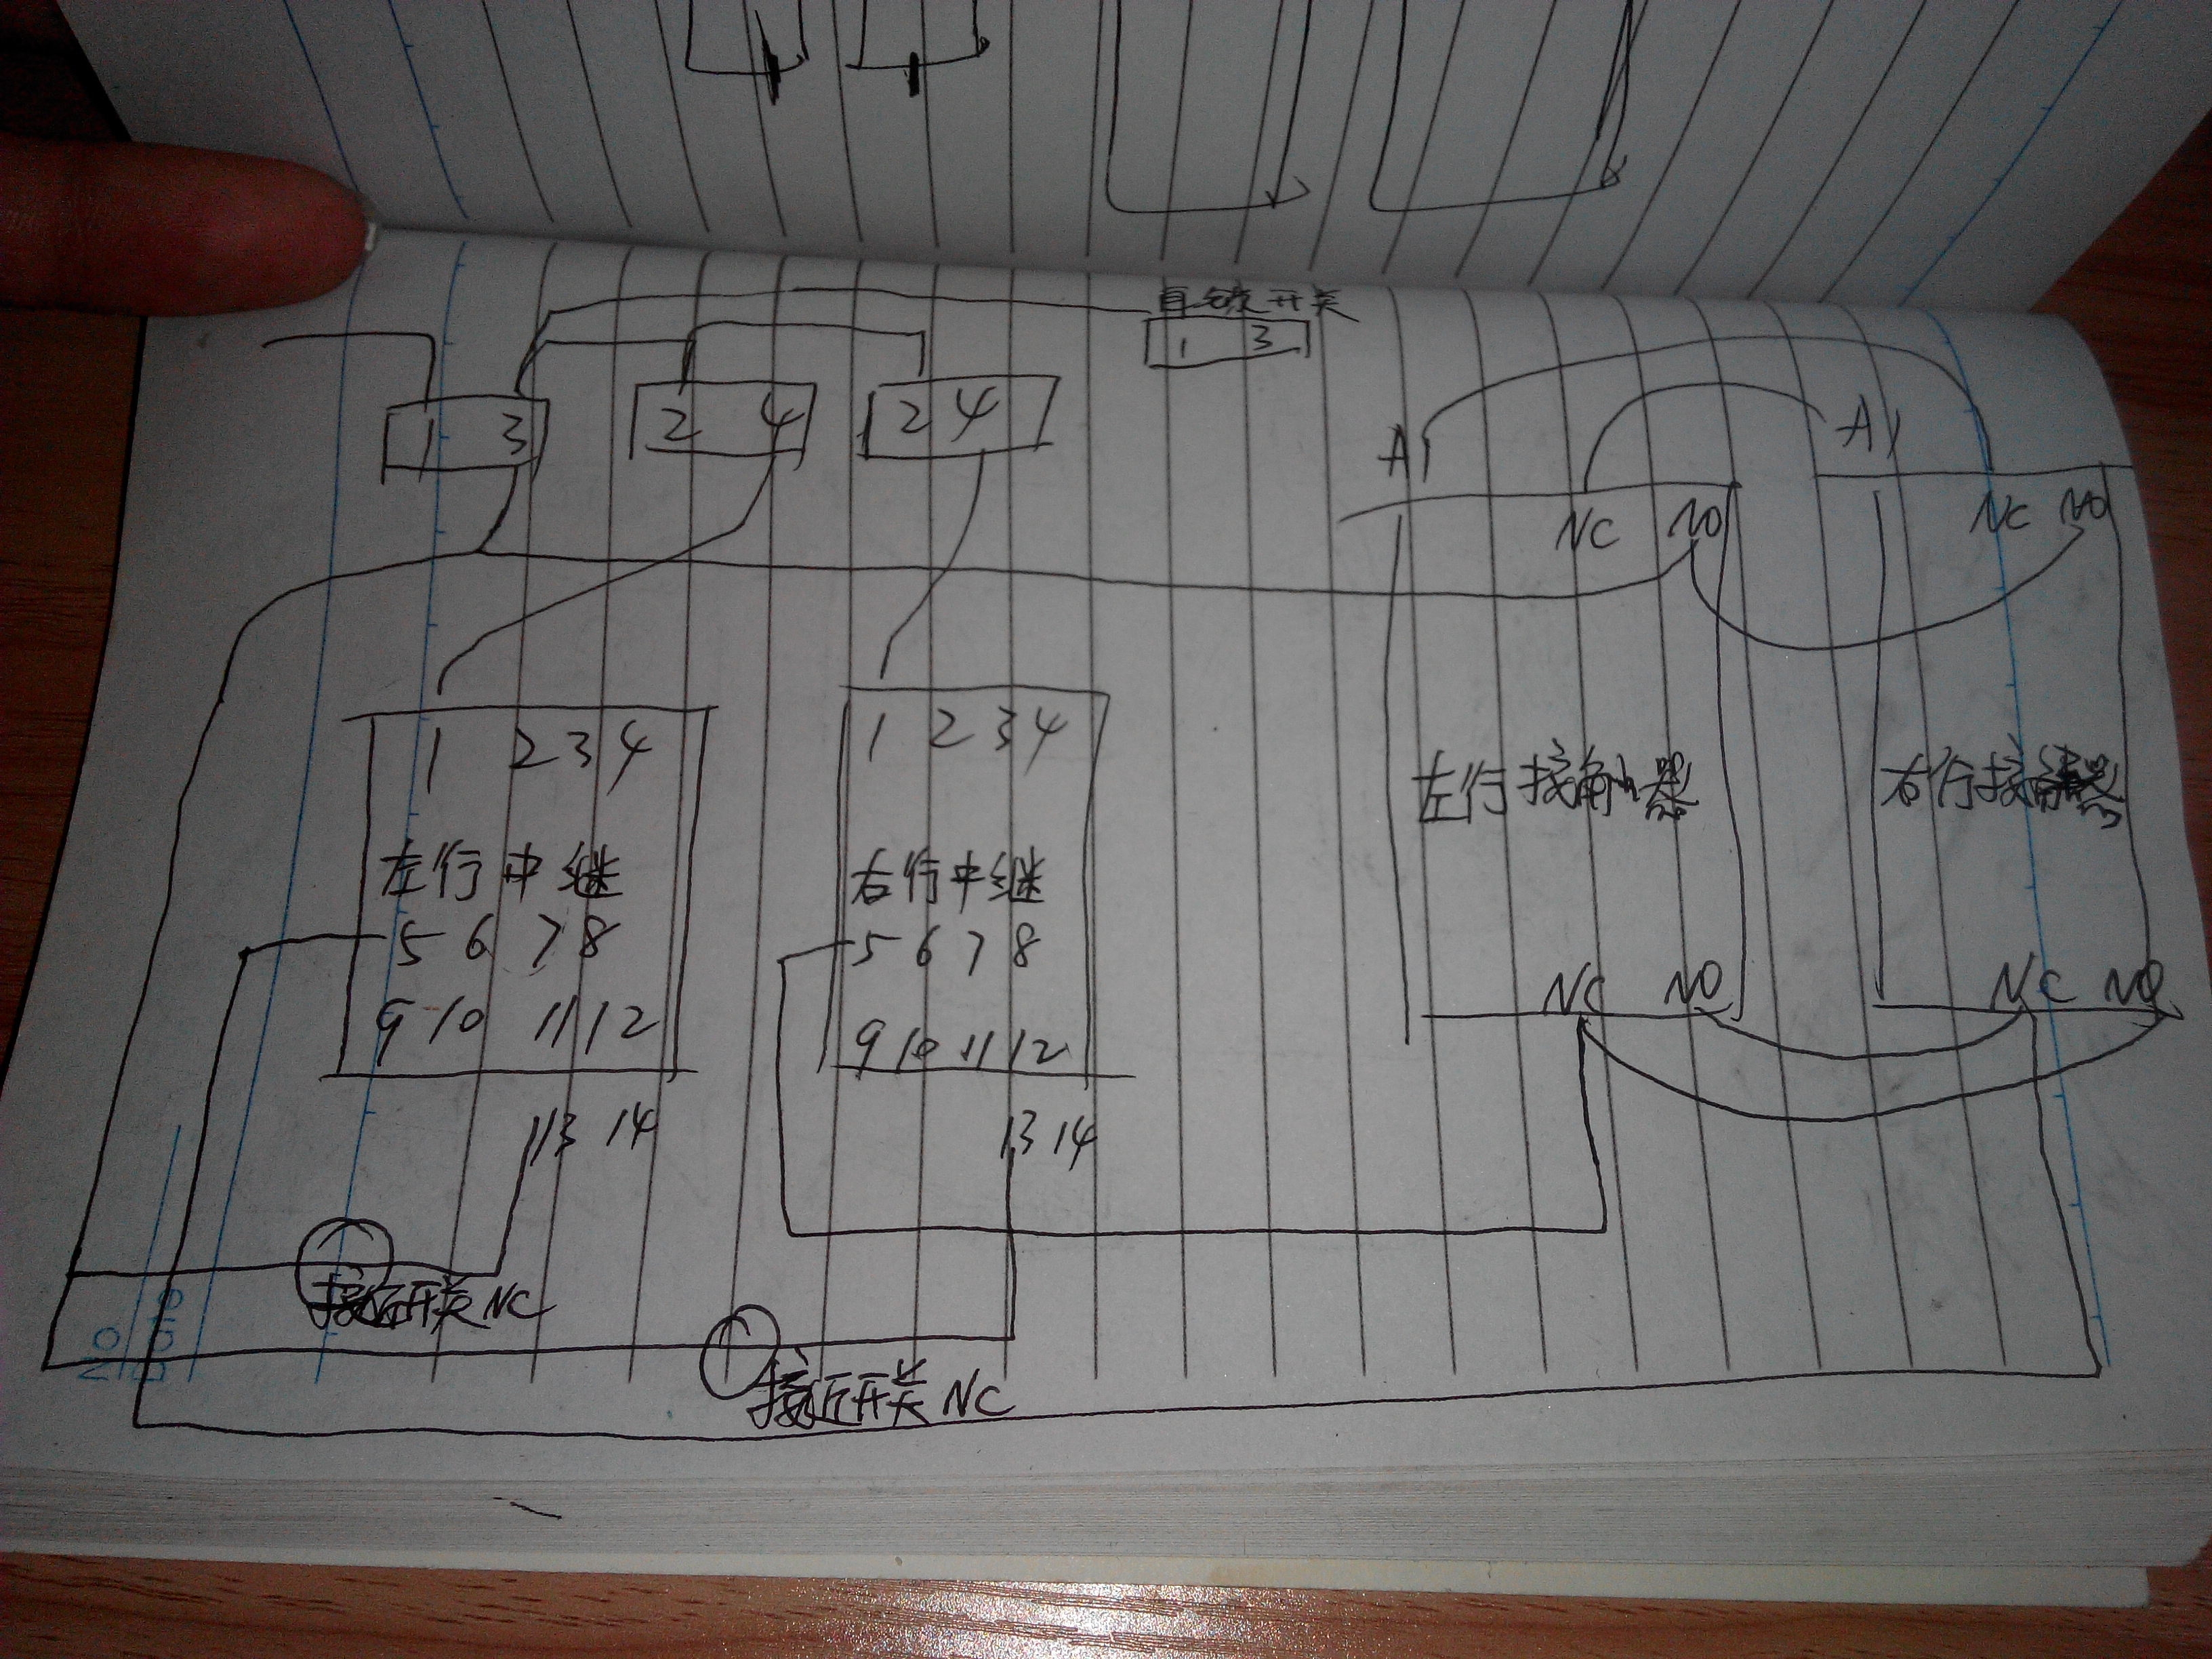 自锁开关
1 3
1 3
2 4
2 4
A1
A1
NC NO
NC NO
1 2 3 4
左行中继
5 6 7 8
9 10 11 12
13 14
1 2 3 4
右行中继
5 6 7 8
9 10 11 12
13 14
左行接触器
右行接触器
NC NO
NC NO
接近开关 NC
接近开关 NC
NO